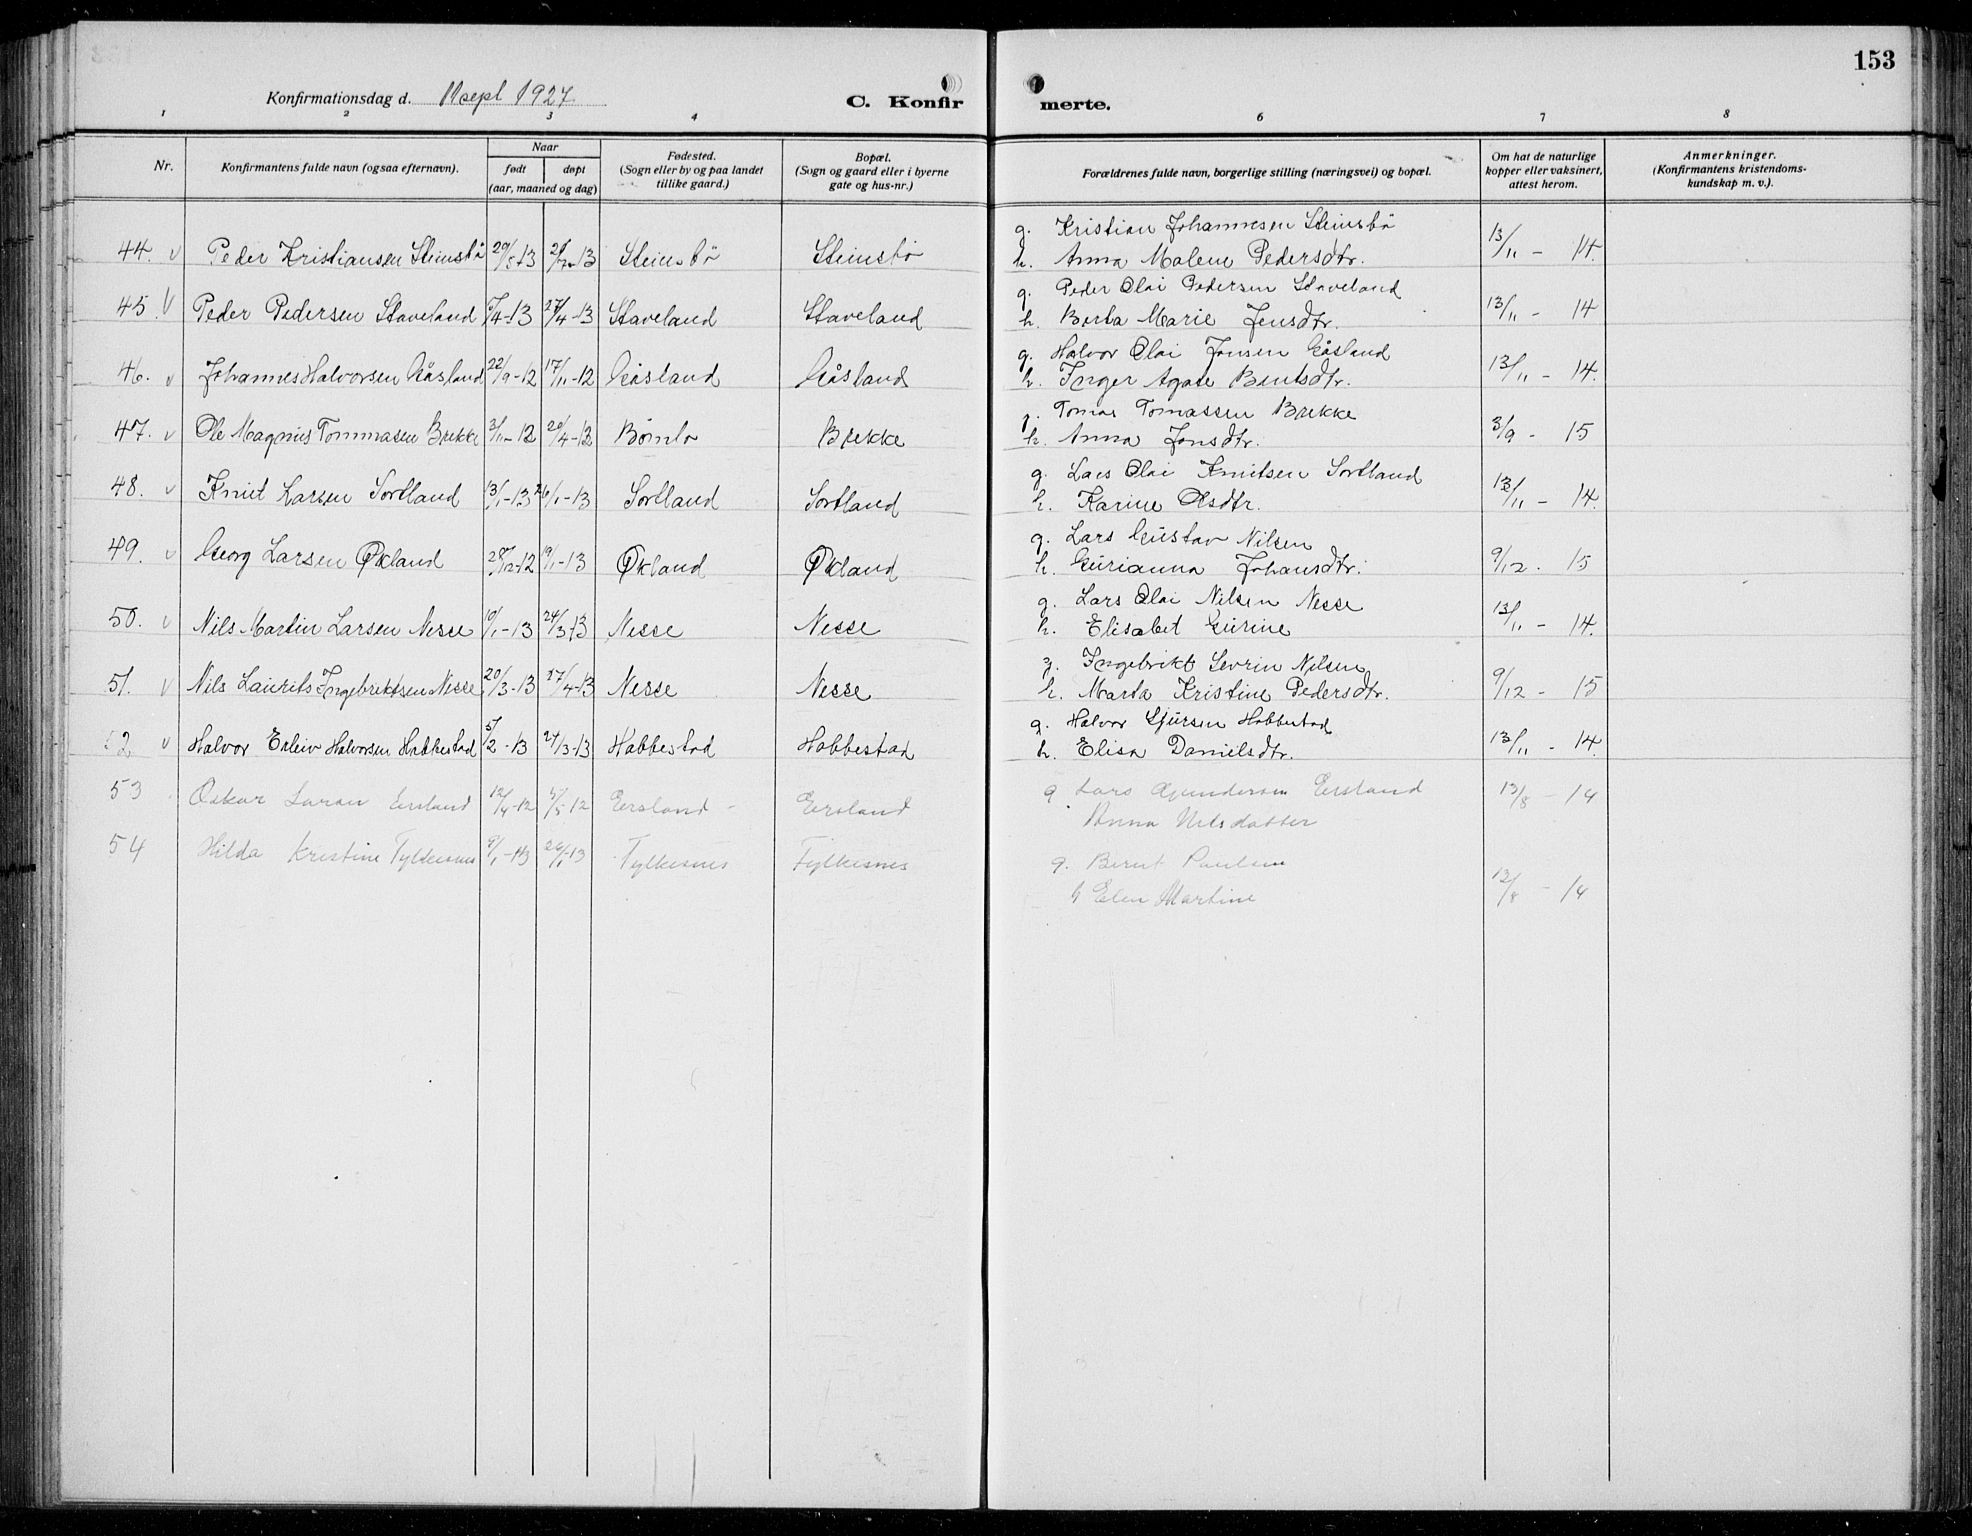 153
Konfirmationsdag d. 11 sept 1927
C. Konfir merte.
1 2 3 4 6 7 8
Nr.
Konfirmantens fulde navn (ogsaa efternavn).
Naar
født døpt
(aar, maaned og dag)
Fødested.
(Sogn eller by og paa landet
tillike gaard.)
Bopæl.
(Sogn og gaard eller i byerne
gate og hus-nr.)
Forældrenes fulde navn, borgerlige stilling (næringsvei) og bopæl.
Om hat de naturlige
kopper eller vaksinert,
attest herom.
Anmerkninger.
(Konfirmantens kristendoms-
kundskap m. v.).
g. Kristian Johannesen Steinsbø
44. v Peder Kristiansen Steinsbø 20/5-13 Steinsbø Steinsbø h. Anna Malene Pedersdtr. 13/11 - 14
g. Peder Olai Pedersen Staveland
45. v Peder Pedersen Staveland 7/4-13 27/4-13 Staveland Staveland h. Berta Marie Jensdtr. 13/11 - 14
g. Halvor Olai Jonsen Gåsland
46. v Johannes Halvorsen Gåsland 22/9-12 17/11-12 Gåsland Gåsland h. Inger Agate Bentsdtr. 13/11 - 14.
g. Tomas Tomassen Brekke
47. v Ole Magnus Tommasen Brekke 3/11-12 20/4-13 Bømlo Brekke h. Anna Jonsdtr. 3/9 - 15
g. Lars Olai Knutsen Sortland
48. v Knut Larsen Sortland 13/1-13 26/1-13 Sortland Sortland h. Karine Olsdtr. 13/11 - 14.
g. Lars Gustav Nilsen
49. v Georg Larsen Økland 28/12-12 19/1-13 Økland Økland h. Gurianna Johansdtr. 9/12 - 15
g. Lars Olai Nilsen Nesse
50. v Nils Martin Larsen Nesse 10/1-13 24/3-13 Nesse Nesse h. Elisabet Gurine 13/11 - 14.
g. Ingebrikt Sevrin Nilsen
51. v Nils Laurits Ingebriktsen Nesse 20/3-13 27/4-13 Nesse Nesse h. Marta Kristine Pedersdtr. 9/12 - 15
g. Halvor Sjursen Habbestad
52 v Halvor Erleiv Halvorsen Habbestad 5/2-13 24/3-13 Habbestad Habbestad h. Elisa Danielsdtr. 13/11 - 14.
53 Oskar Larsen Eirsland 12/4-12 /5-12 Eirsland Eirsland g Lars Gundersen Eirsland 13/8 - 14
Anna Nilsdatter
54 Hilda Kristine Fylkesnes 9/1-13 26/1-13 Fylkesnes Fylkesnes g. Bernt Paulsen
h Elen Martine 13/8 - 14